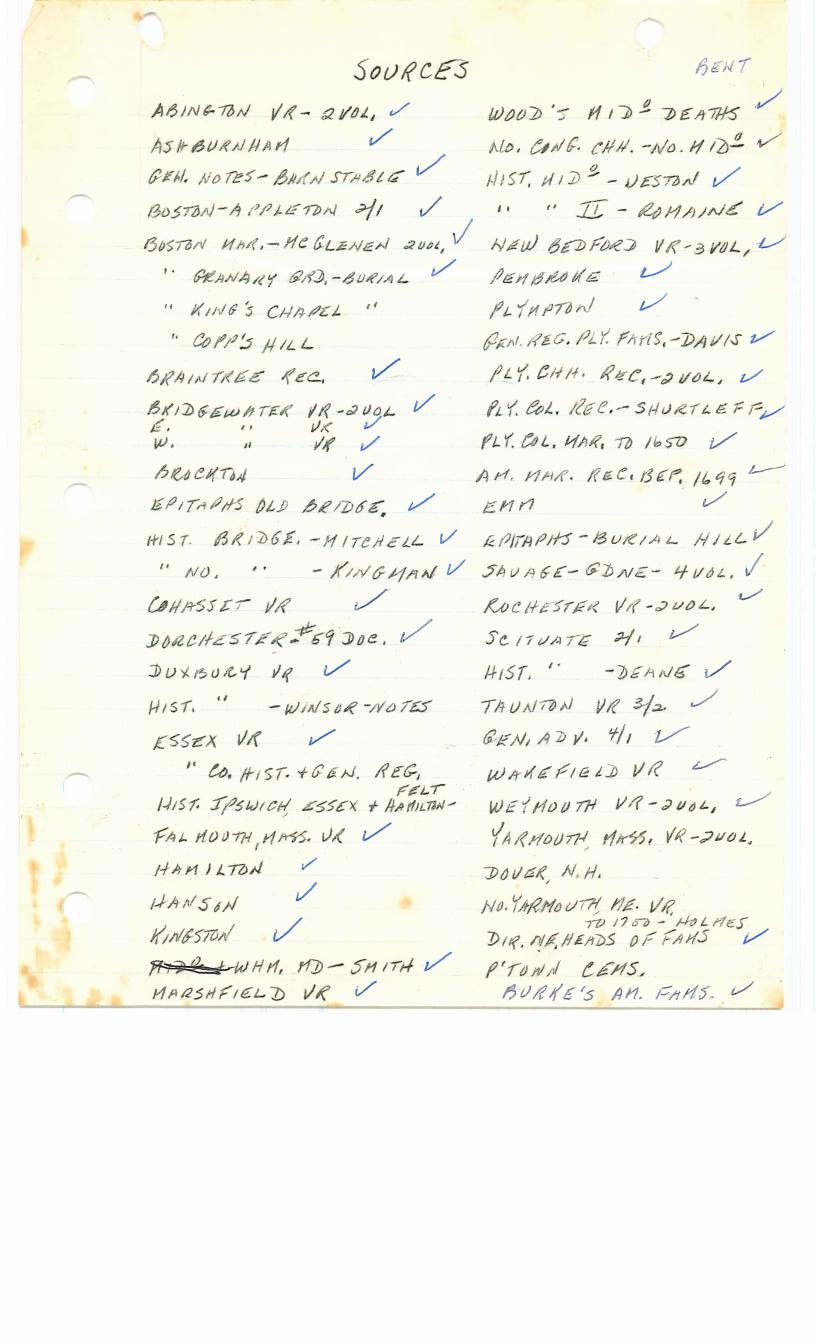 SOURCES
BENT
ABINGTON VR - 2 VOL. ✓
ASHBURNHAM ✓
GEN. NOTES - BARNSTABLE ✓
BOSTON - APPLETON 2/1 ✓
BOSTON MAR. - MCGLENEN 2 VOL. ✓
" GRANARY GRD. - BURIAL ✓
" KING'S CHAPEL "
" COPP'S HILL
BRAINTREE REC. ✓
BRIDGEWATER VR - 2 VOL ✓
E. " VR ✓
W. " VR ✓
BROCKTON ✓
EPITAPHS OLD BRIDGE. ✓
HIST. BRIDGE. - MITCHELL ✓
" NO. " - KINGMAN ✓
COHASSET VR ✓
DORCHESTER - #59 DOC. ✓
DUXBURY VR ✓
HIST. " - WINSOR - NOTES
ESSEX VR ✓
" CO. HIST. + GEN. REG.
FELT
HIST. IPSWICH, ESSEX + HAMILTON -
FALMOUTH, MASS. VR ✓
HAMILTON ✓
HANSON ✓
KINGSTON ✓
WHM. MD - SMITH ✓
MARSHFIELD VR ✓
WOOD'S MIDº DEATHS ✓
NO. CONG. CHH. - NO. MIDº ✓
HIST. MIDº - WESTON ✓
" " II - ROMAINE ✓
NEW BEDFORD VR - 3 VOL. ✓
PEMBROKE ✓
PLYMPTON ✓
GEN. REG. PLY. FAMS. - DAVIS ✓
PLY. CHH. REC. - 2 VOL. ✓
PLY. COL. REC. - SHURTLEFF ✓
PLY. COL. MAR. TO 1650 ✓
AM. MAR. REC. BEF. 1699 ✓
EMM ✓
EPITAPHS - BURIAL HILL ✓
SAVAGE - GDNE - 4 VOL. ✓
ROCHESTER VR - 2 VOL. ✓
SCITUATE 2/1 ✓
HIST. " - DEANE ✓
TAUNTON VR 3/2 ✓
GEN. ADV. 4/1 ✓
WAKEFIELD VR ✓
WEYMOUTH VR - 2 VOL. ✓
YARMOUTH, MASS. VR - 2 VOL.
DOVER, N.H.
NO. YARMOUTH, ME. VR,
TO 1750 - HOLMES
DIR. NE, HEADS OF FAMS ✓
P'TOWN CEMS.
BURKE'S AM. FAMS. ✓